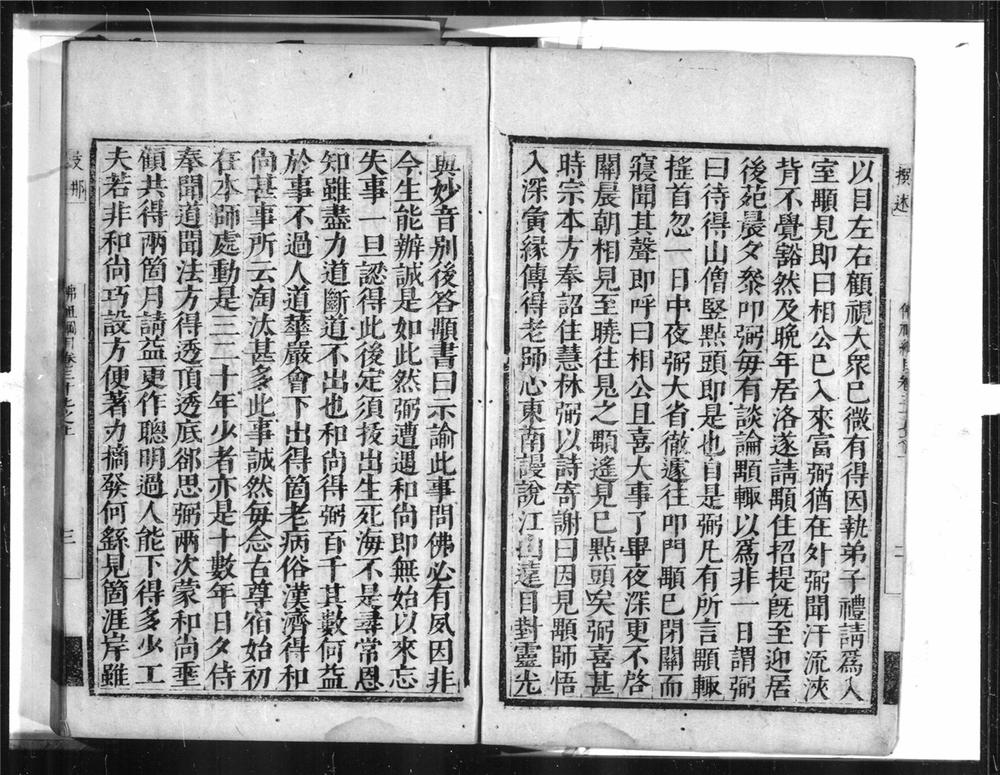 撰述
以目左右顧視大衆巳微有得因執弟子禮請爲入
室顒見即曰相公巳入來富弼猶在外弼聞汗流浹
背不覺豁然及晚年居洛遂請顒住招提旣至迎居
後苑晨夕叅叩弼每有談論顒輙以爲非一日謂弼
曰待得山僧竪點頭即是也自是弼凡有所言顒輙
搖首忽一日中夜弼大省徹遽往叩門顒巳閉關而
寢聞其聲即呼曰相公且喜大事了畢夜深更不啓
關晨朝相見至曉往見之顒遙見巳點頭矣弼喜甚
時宗本方奉詔住慧林弼以詩寄謝曰因見顒師悟
入深夤緣傳得老師心東南謾說江山遠目對靈光
二
與妙音別後答顒書曰示諭此事問佛必有夙因非
今生能辦誠是如此然弼遭遇和尚即無始以來忘
失事一旦認得此後定須㧞出生死海不是尋常恩
知雖盡力道斷道不出也和尚得弼百千其數何益
於事不過人道華嚴會下出得箇老病俗漢濟得和
尚甚事所云淘汰甚多此事誠然每念古尊宿始初
在本師處動是三二十年少者亦是十數年日夕侍
奉聞道聞法方得透頂透底郤思弼兩次蒙和尚垂
顧共得兩箇月請益更作聰明過人能下得多少工
夫若非和尚巧設方便著力擿發何繇見箇涯岸雖
支那
佛祖綱目卷三十九之上
三